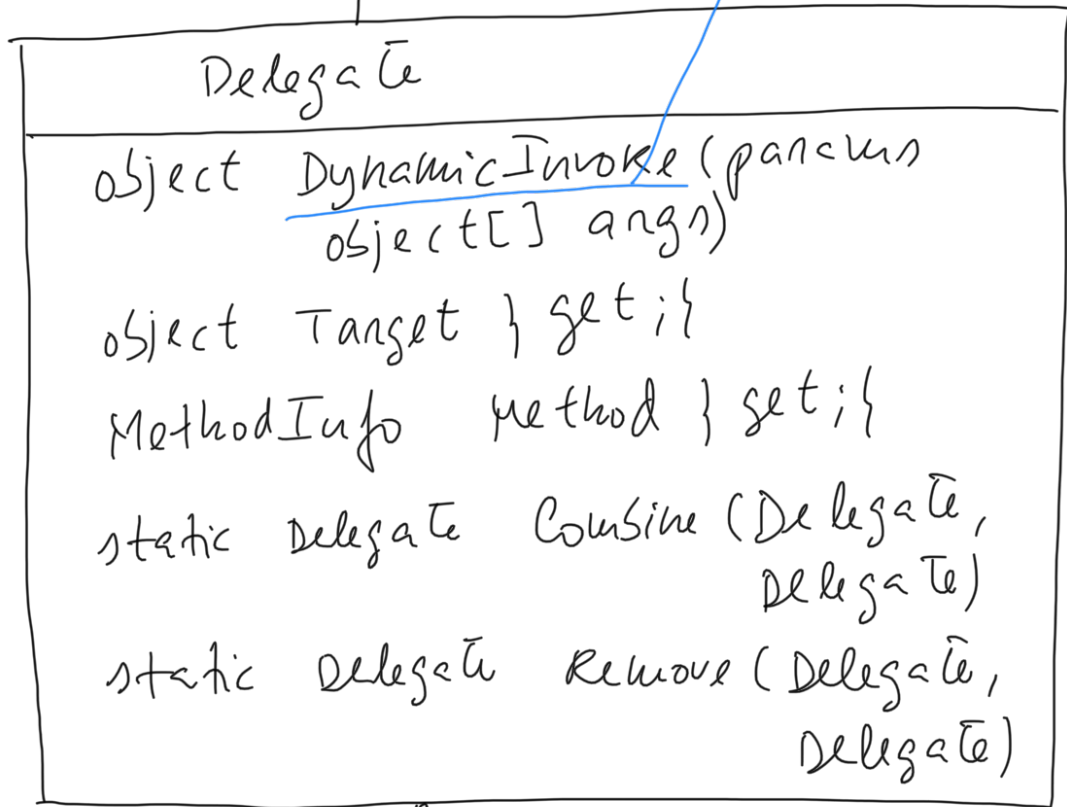 Delegate
object DynamicInvoke (params
object[] args)
object Target { get; }
MethodInfo Method { get; }
static Delegate Combine (Delegate,
Delegate)
static Delegate Remove (Delegate,
Delegate)